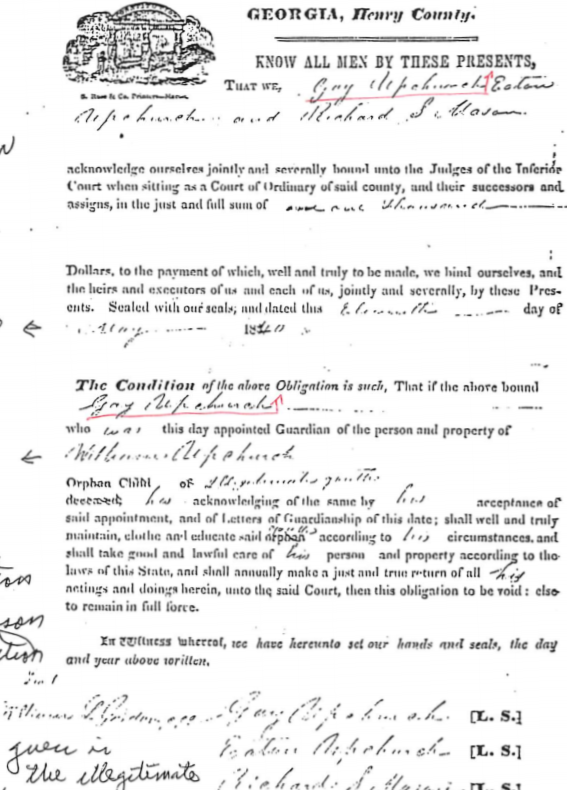 GEORGIA, Henry County.
KNOW ALL MEN BY THESE PRESENTS,
THAT WE, Gay Upchurch Eaton
Upchurch and Richard S. Mason
acknowledge ourselves jointly and severally bound unto the Judges of the Inferior
Court when sitting as a Court of Ordinary of said county, and their successors and
assigns, in the just and full sum of one thousand
Dollars, to the payment of which, well and truly to be made, we bind ourselves, and
the heirs and executors of us and each of us, jointly and severally, by these Pres-
ents. Sealed with our seals; and dated this Eleventh day of
May 1840
The Condition of the above Obligation is such, That if the above bound
Gay Upchurch
who was this day appointed Guardian of the person and property of
Upchurch
Orphan Child of
deceased; his acknowledging of the same by his acceptance of
said appointment, and of Letters of Guardianship of this date; shall well and truly
maintain, clothe and educate said orphan according to his circumstances, and
shall take good and lawful care of his person and property according to the
laws of this State, and shall annually make a just and true return of all his
actings and doings herein, unto the said Court, then this obligation to be void: else
to remain in full force.
In Witness whereof, we have hereunto set our hands and seals, the day
and year above written.
Gay Upchurch [L. S.]
Eaton Upchurch [L. S.]
Richard S Mason [L. S.]
the illegitimate